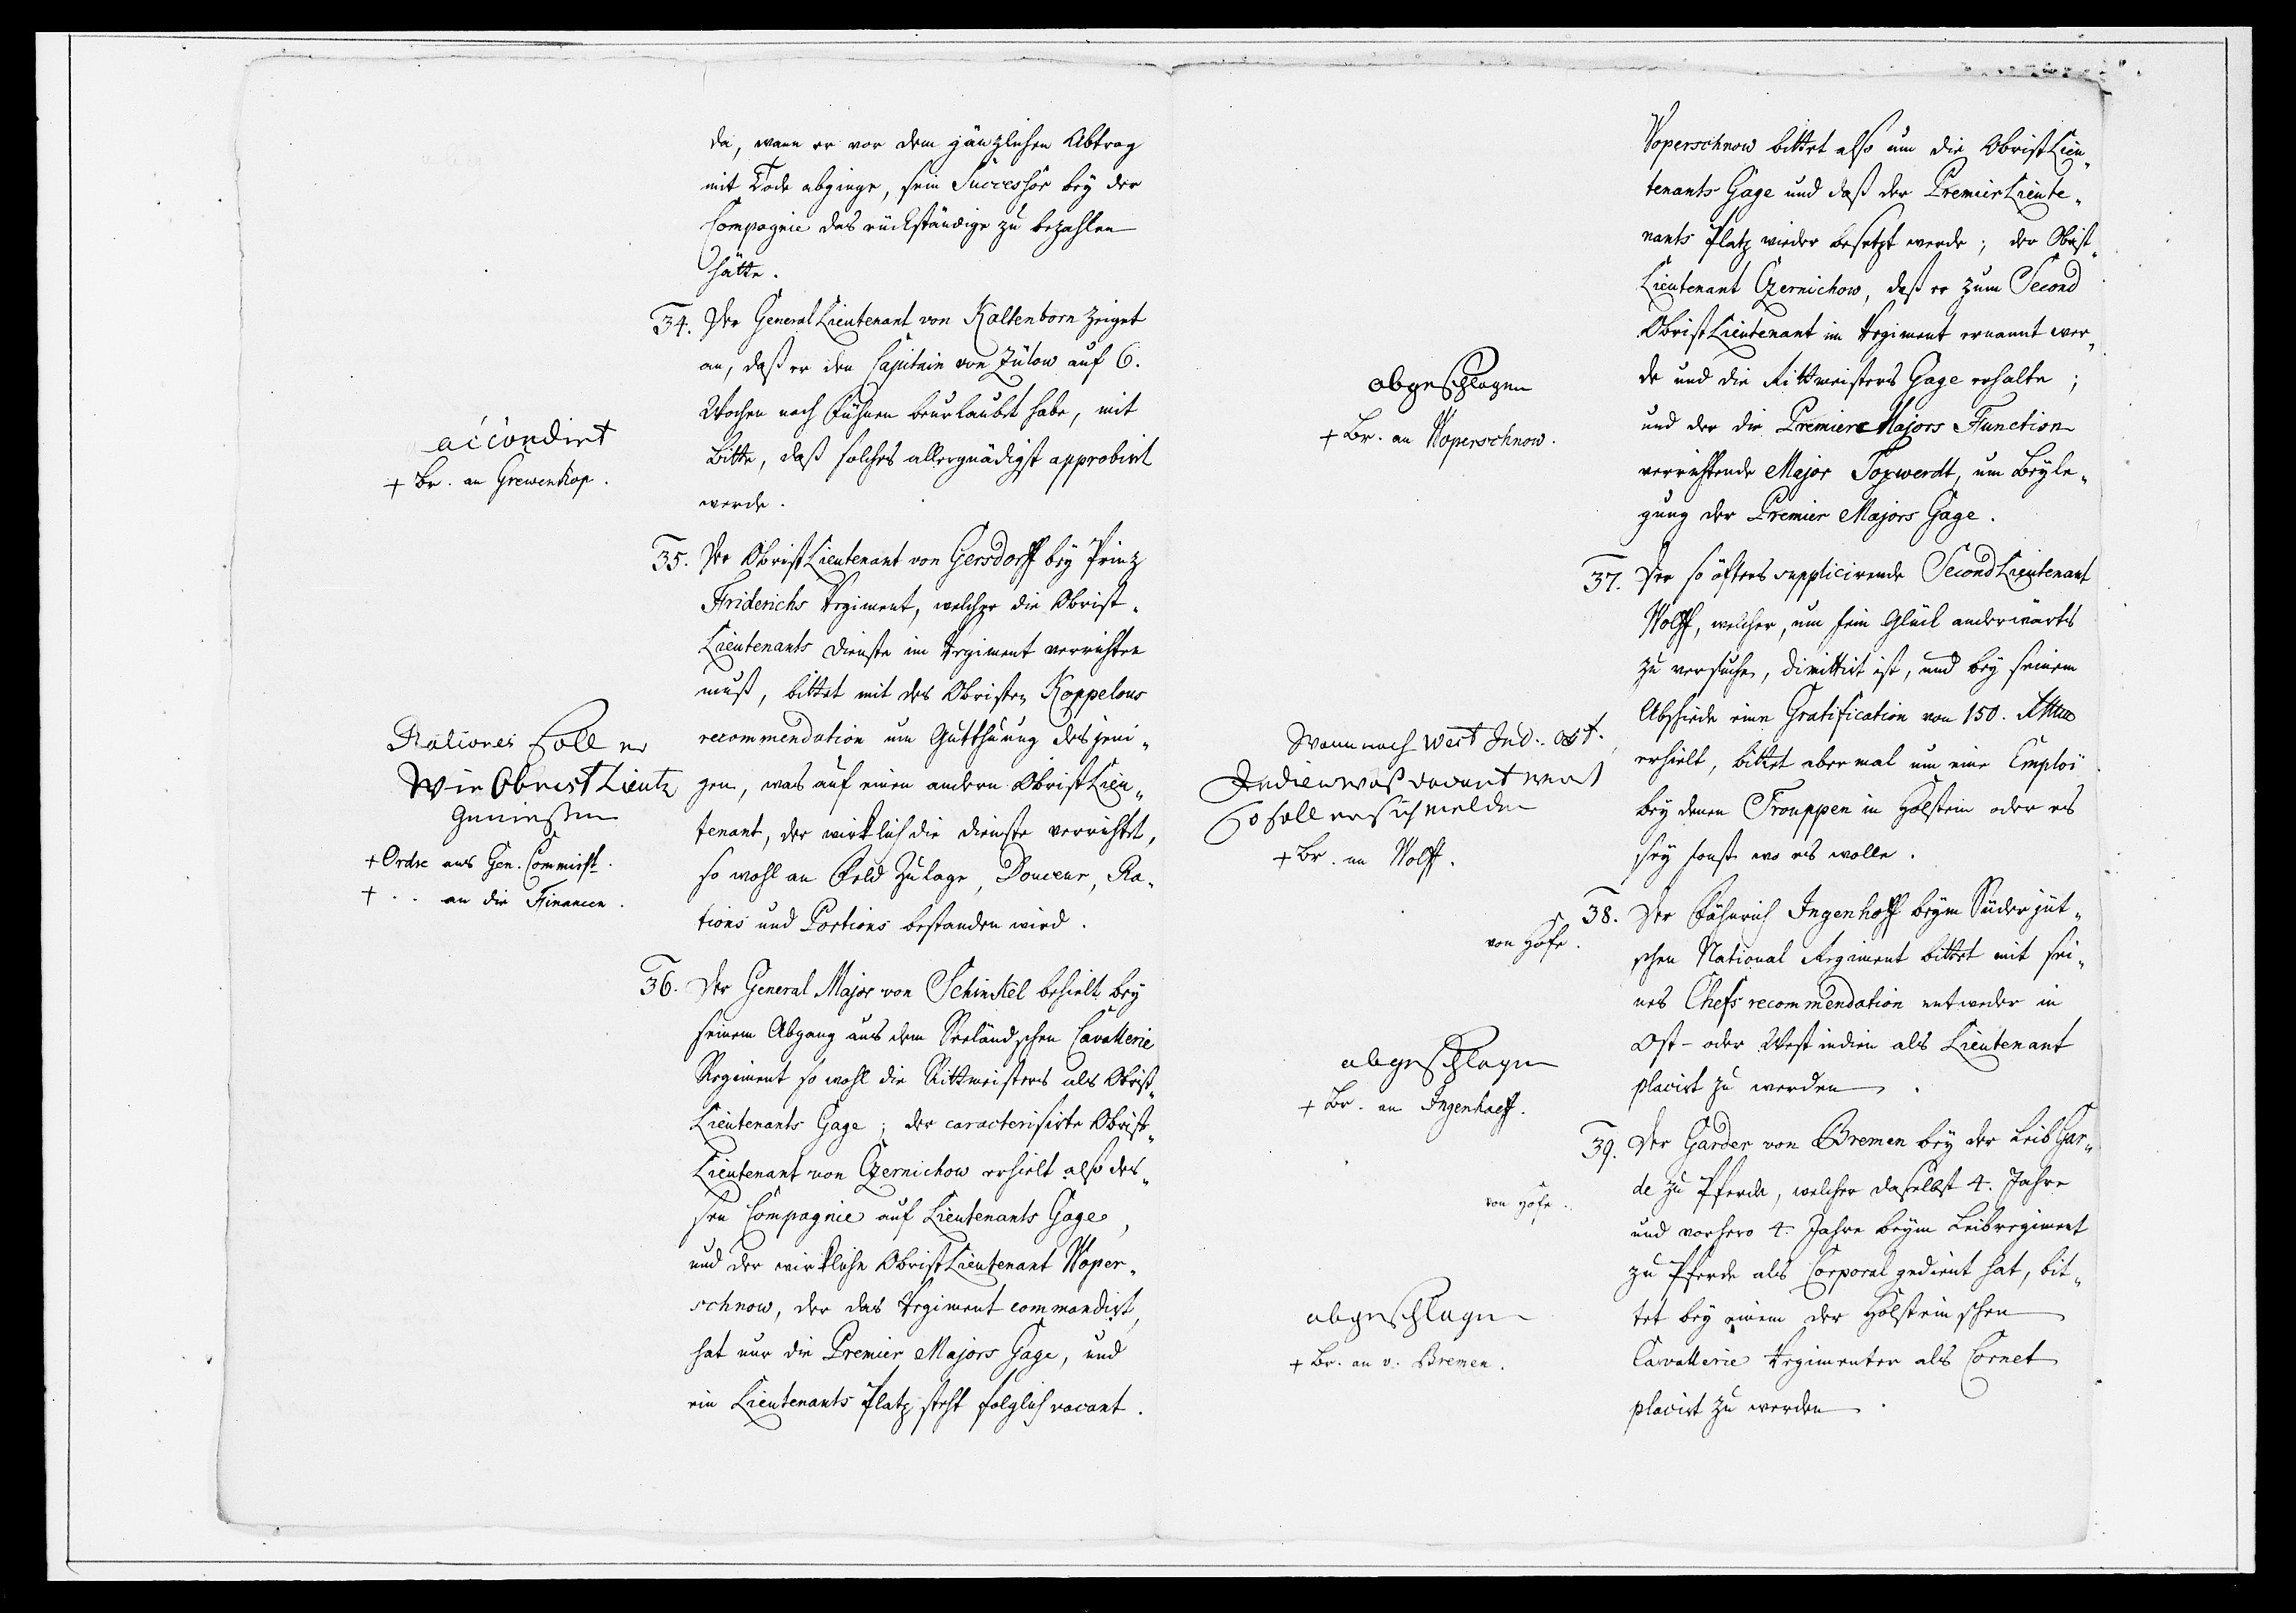 da, wann er vor dem gänzlichen Abtrag
mit Tode abginge, sein Successor bey der
Compagnie das rückständige zu bezahlen
hätte.
34. Der General Lieutenant von Kaltenborn zeiget
an, daß er den Capitain von Zülow auf 6.
Wochen nach Fühnen beurlaubt habe, mit
Bitte, daß solches allergnädigst approbirt
werde.
accordirt
+ Br. an Grewenkop.
35. Der Obrist Lieutenant von Gersdorff bey Prinz
Friderichs Regiment, welcher die Obrist-
Lieutenants Dienste im Regiment verrichten
muß, bittet mit des Obristen Koppelous
recommendation um Gutthuung desjeni-
gen, was auf einen andern Obrist Lieu-
tenant, der wirklich die Dienste verrichtet,
so wohl an Feld Zulage, Douceur, Ra-
tions und Portions bestanden wird.
Rationes soll er
wie Obrist Lieutz
geniessen
+ Ordre ans Gen. Commisst.
+ .. an die Financen.
36. Der General Major von Schinkel behielt bey
seinem Abgang aus dem Seeländschen Cavallerie
Regiment so wohl die Rittmeisters als Obrist-
Lieutenants Gage; der caracterisirte Obrist-
Lieutenant von Czernichow erhielt also des-
sen Compagnie auf Lieutenants Gage,
und der wirkliche Obrist Lieutenant Woper-
schnow, der das Regiment commandirt,
hat nur die Premier Majors Gage, und
ein Lieutenants Platz steht folglich vacant.
Woperschnow bittet also um die Obrist Lieu-
tenants Gage und daß der Premier Lieute-
nants Platz wieder besetzt werde; der Obrist-
Lieutenant Czernichow, daß er zum Second
Obrist Lieutenant im Regiment ernannt wer-
de und die Rittmeisters Gage erhalte;
und der die Premier Majors Function
verrichtende Major Toxwerdt, um Beyle-
gung der Premier Majors Gage.
abgeschlagen
+ Br. an Woperschnow.
37. Der so öfters supplicirende Second Lieutenant
Wolff, welcher, um sein Glück anderwärts
zu versuchen, dimittirt ist, und bey seinem
Abschiede eine Gratification von 150. Rthlr
erhielt, bittet abermal um eine Emploi
bey denen Trouppen in Holstein oder es
sey sonst wo es wolle.
Wann nach West Ind. Ost.
Indien was vacant wert
so soll er sich melden
+ Br. an Wolff.
38. Der Fähnrich Ingenhoff beym Süderjüt-
schen National Regiment bittet mit sei-
nes Chefs recommendation entweder in
Ost- oder Westindien als Lieutenant
placirt zu werden.
von Hofe.
abgeschlagen
+ Br. an Ingenhaeff.
39. Der Garder von Bremen bey der Leib Gar-
de zu Pferde, welcher daselbst 4. Jahre
und vorhero 4. Jahre beym Leibregiment
zu Pferde als Corporal gedient hat, bit-
tet bey einem der Holsteinschen
Cavallerie Regimenter als Cornet
placirt zu werden.
von Hofe.
abgeschlagen
+ Br. an v. Bremen.